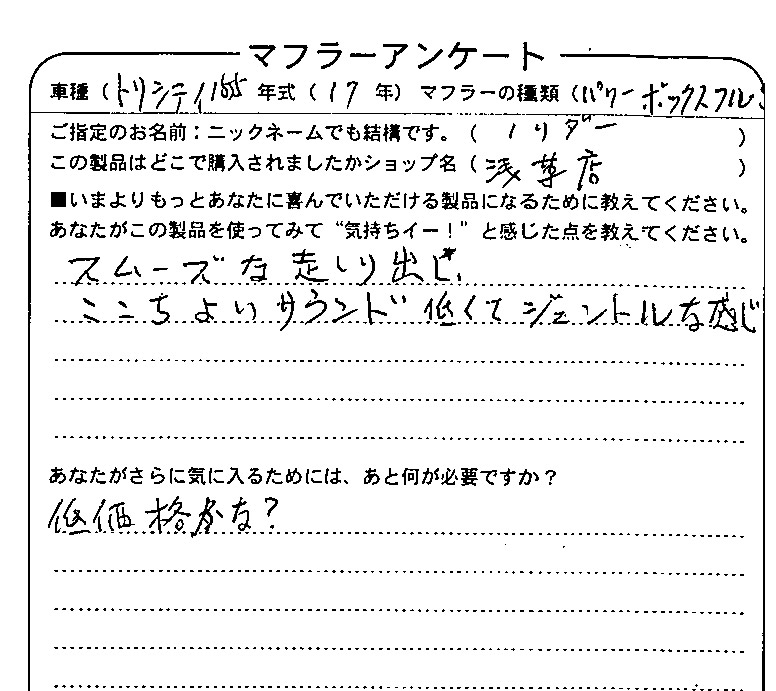 マフラーアンケート
車種(トリシティ155 年式(17年) マフラーの種類(パワーボックスフル
ご指定のお名前:ニックネームでも結構です。(ノリダー)
この製品はどこで購入されましたかショップ名(浅草店)
■いまよりもっとあなたに喜んでいただける製品になるために教えてください。
あなたがこの製品を使ってみて“気持ちイー!”と感じた点を教えてください。
スムーズな走り出し、
ここちよいサウンド 低くてジェントルな感じ
あなたがさらに気に入るためには、あと何が必要ですか?
低価格かな?